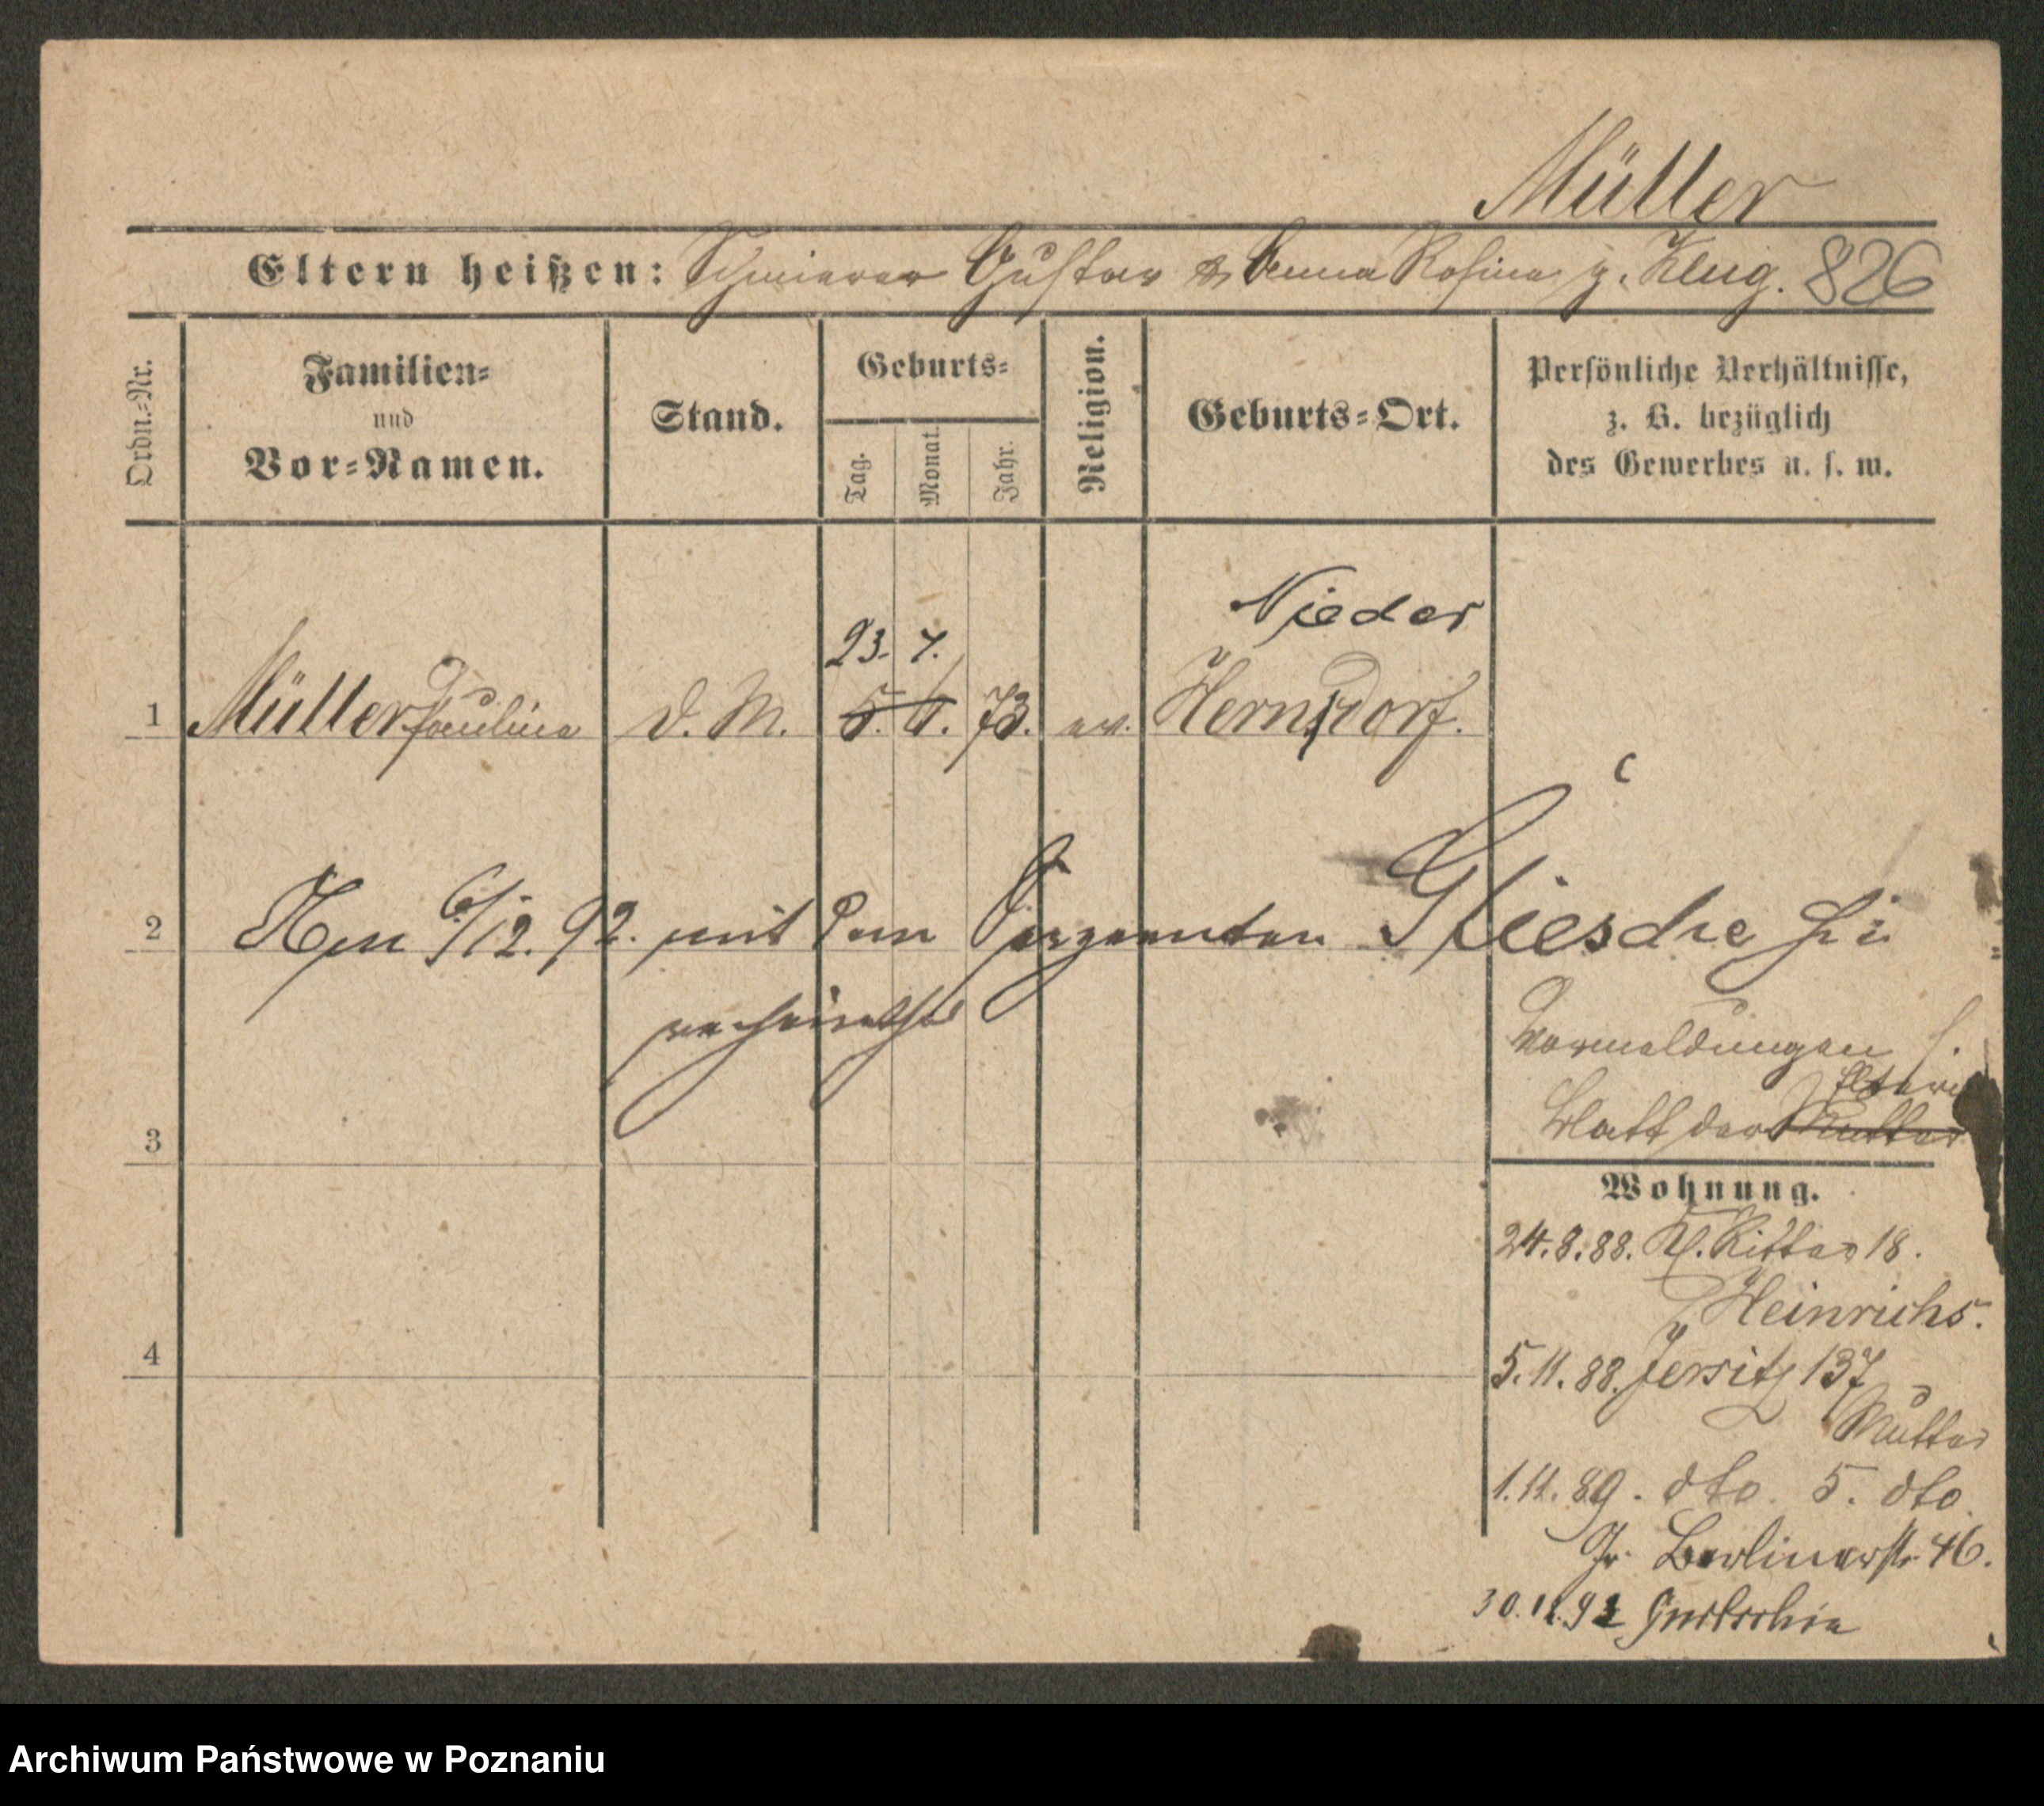 Müller
Eltern heißen: Gustav & Anna Rosina g. Klug. 826
Ordn.=Nr.
Familien=
und
Vor=Namen.
Stand.
Geburts=
Tag.
Monat.
Jahr.
Religion.
Geburts=Ort.
Persönliche Verhältnisse,
z. B. bezüglich
des Gewerbes u. s. w.
Nieder
23. 7.
1 Müller Pauline d. M. 5. 6. 73. ev. Hernsdorf.
2 Am 6/12. 92. mit dem Sergeanten Gliesche
verheirathet
Vormeldungen s.
Eltern
Blatt der Mutter
3
Wohnung.
24.8.88. Kl. Ritter 18.
Heinrichs.
4
5.11.88. Jersitz 137
Mutter
1.11.89. dto. 5. dto.
Gr. Berlinerstr. 46.
Archiwum Państwowe w Poznaniu